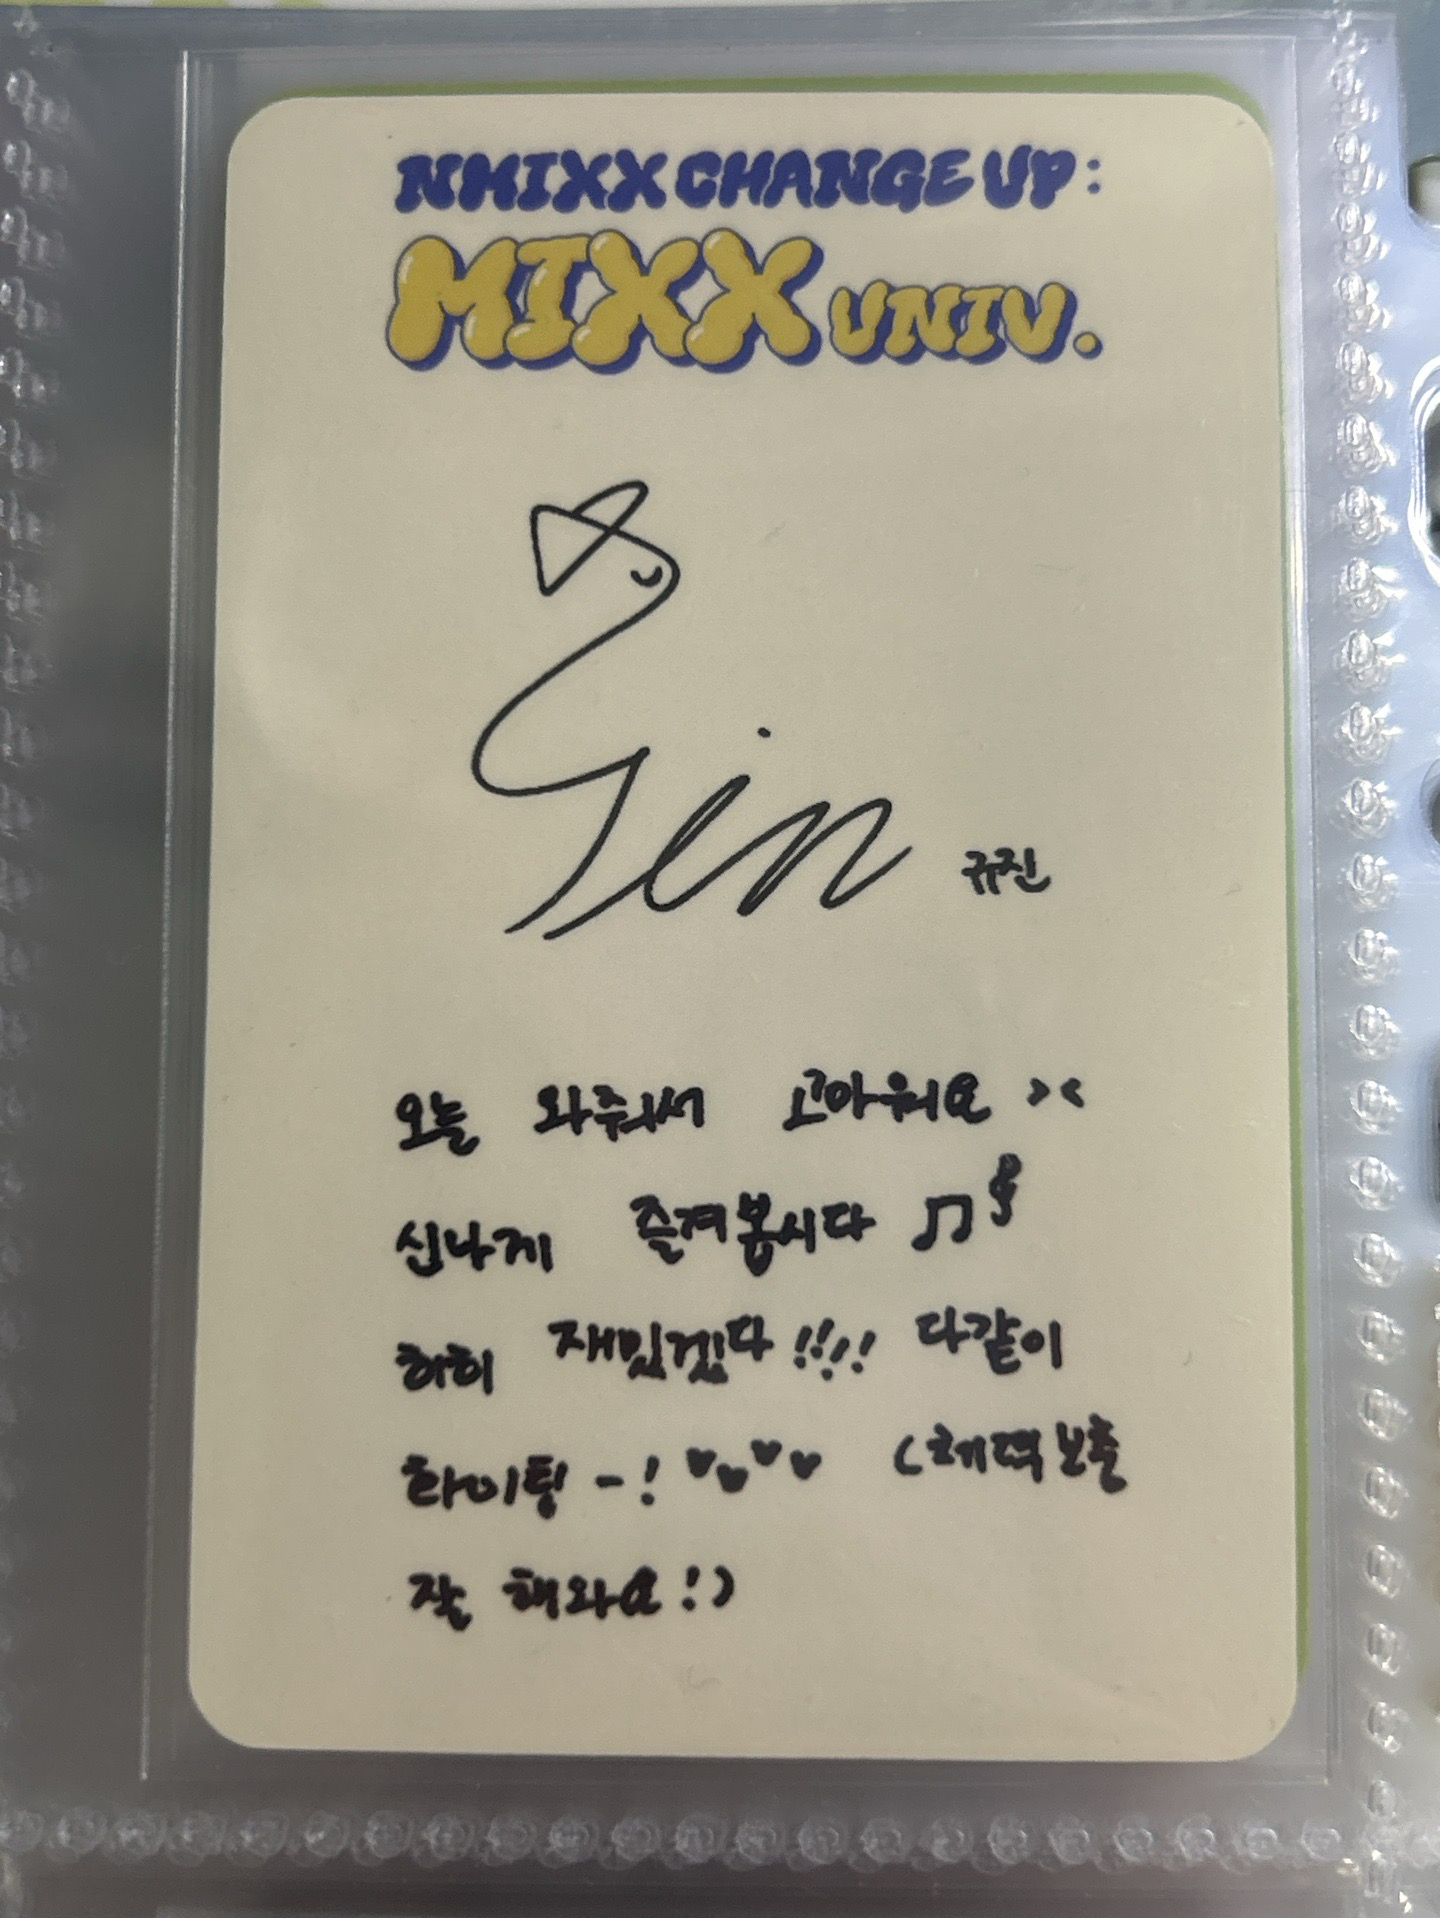 NMIXX CHANGE UP:
MIXX UNIV.
Jin 규진
오늘 와줘서 고마워요 ><
신나게 즐겨봅시다 ♫
하히 재밌겠다!!!! 다같이
화이팅-! ♥♥♥♥ (체력보충
잘 해와요!)